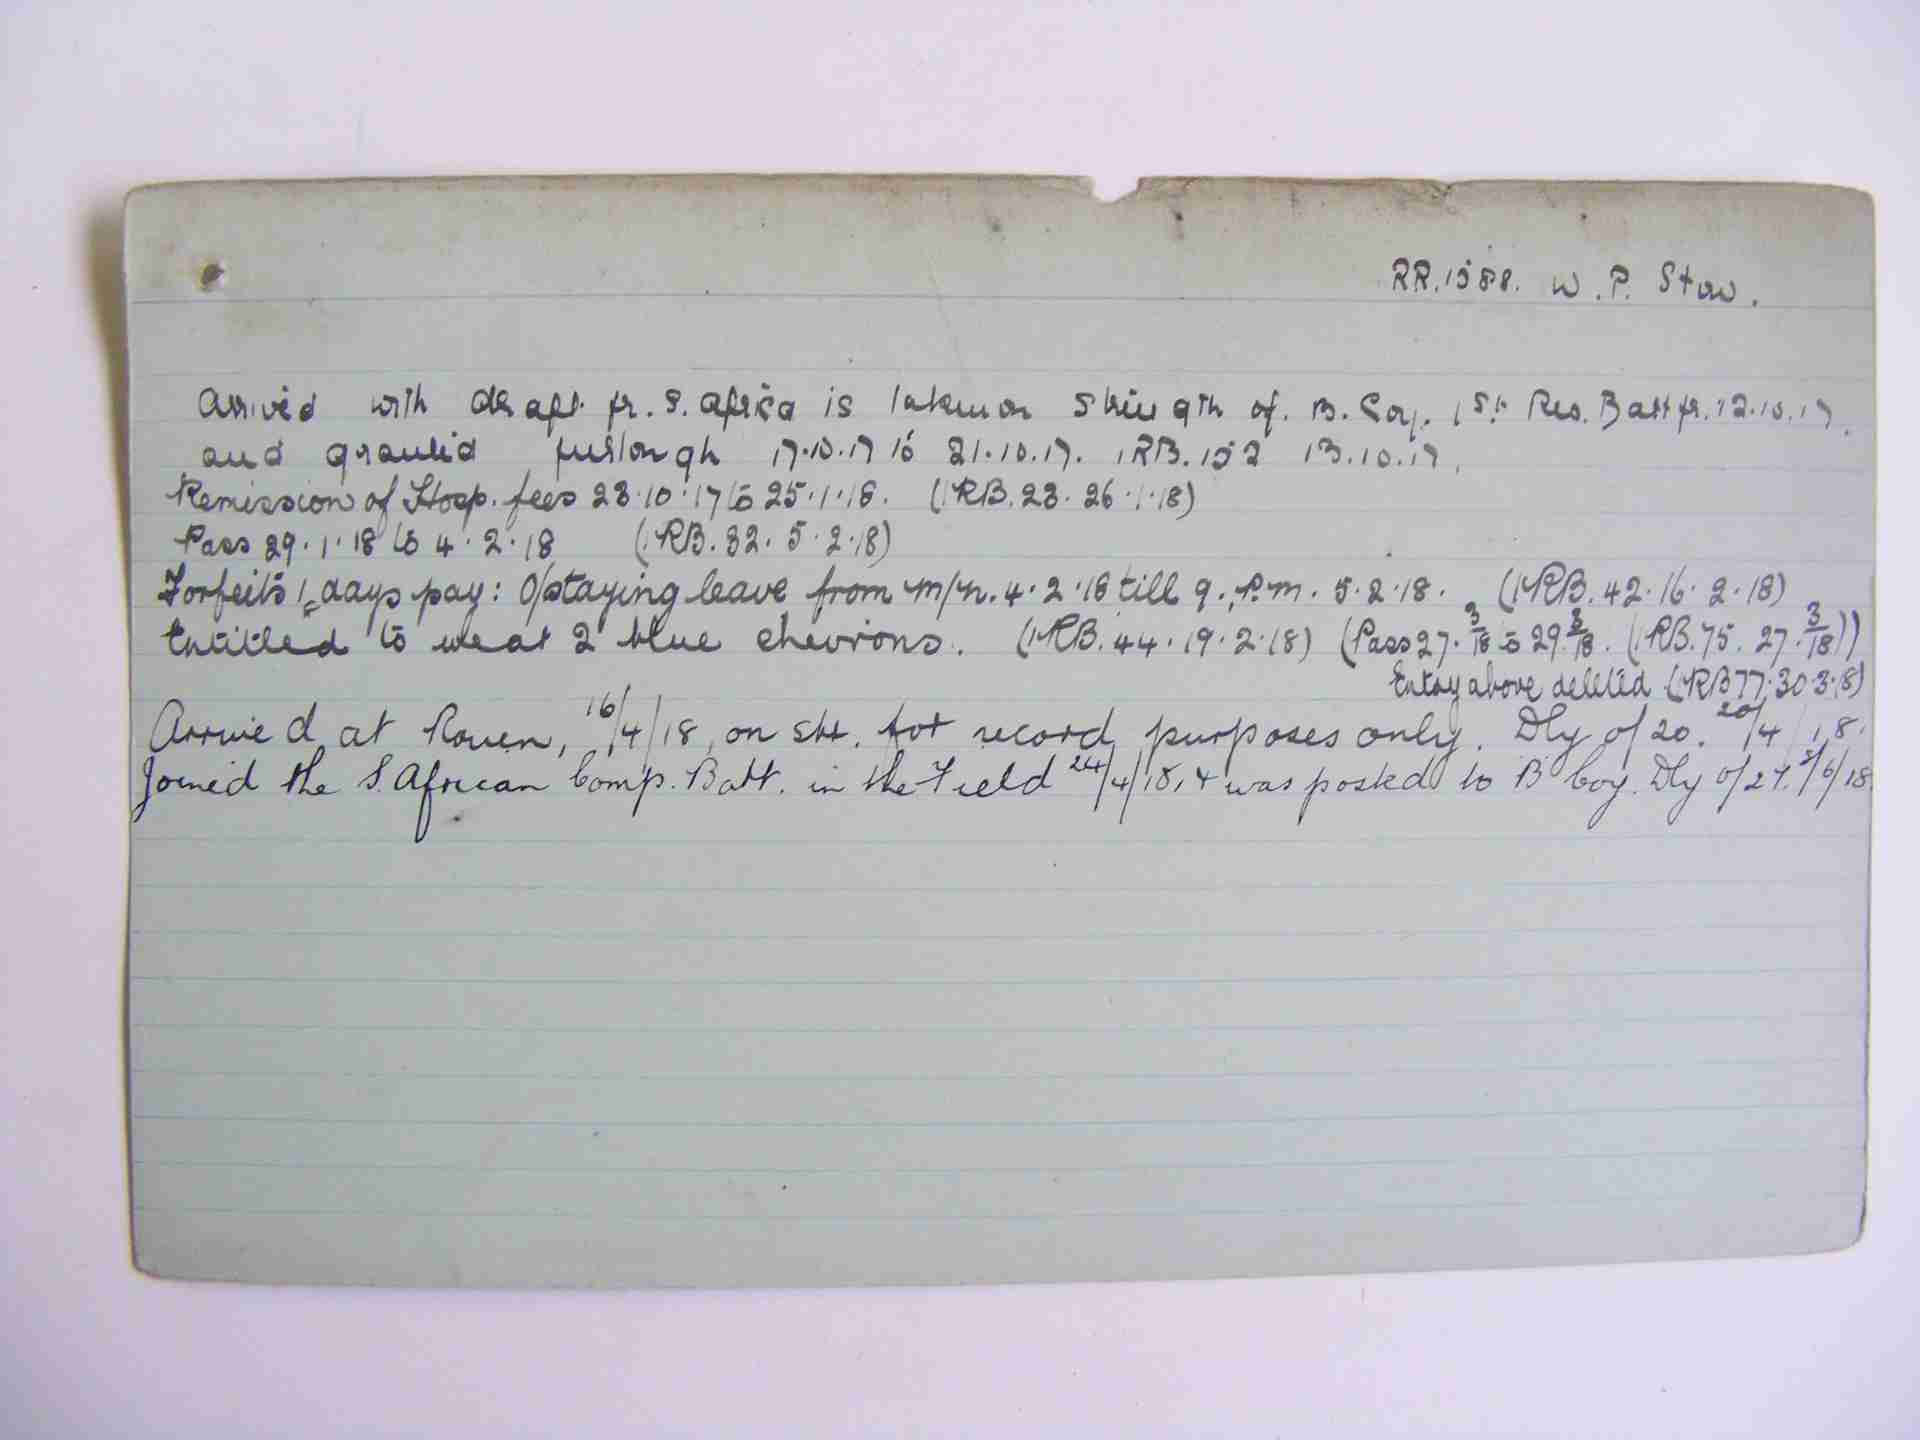 RR.1588. W. P. Stow.
Arrived with draft fr. S. Africa is taken on strength of B. Coy. 1st Res. Batt fr. 12.10.17.
and granted furlough 17.10.17 to 21.10.17. 1RB.152 13.10.17.
Remission of Hosp. fees 23.10.17 to 25.1.18. (1RB.23. 26.1.18)
Pass 29.1.18 to 4.2.18 (1RB.32. 5.2.18)
Forfeits 1 days pay: O/staying leave from M/N. 4.2.18 till 9. P.M. 5.2.18. (1RB.42.16.2.18)
Entitled to wear 2 blue chevrons. (1RB.44.19.2.18) (Pass 27.3/18 to 29.3/18. (1RB.75. 27.3/18))
Entry above deleted (1RB77.30.3.18)
Arrived at Rouen, 16/4/18, on str. for record purposes only. Dly o/20. 20/4/18.
Joined the S. African Comp. Batt. in the Field 24/4/18, & was posted to B Coy. Dly o/27. 5/6/18.